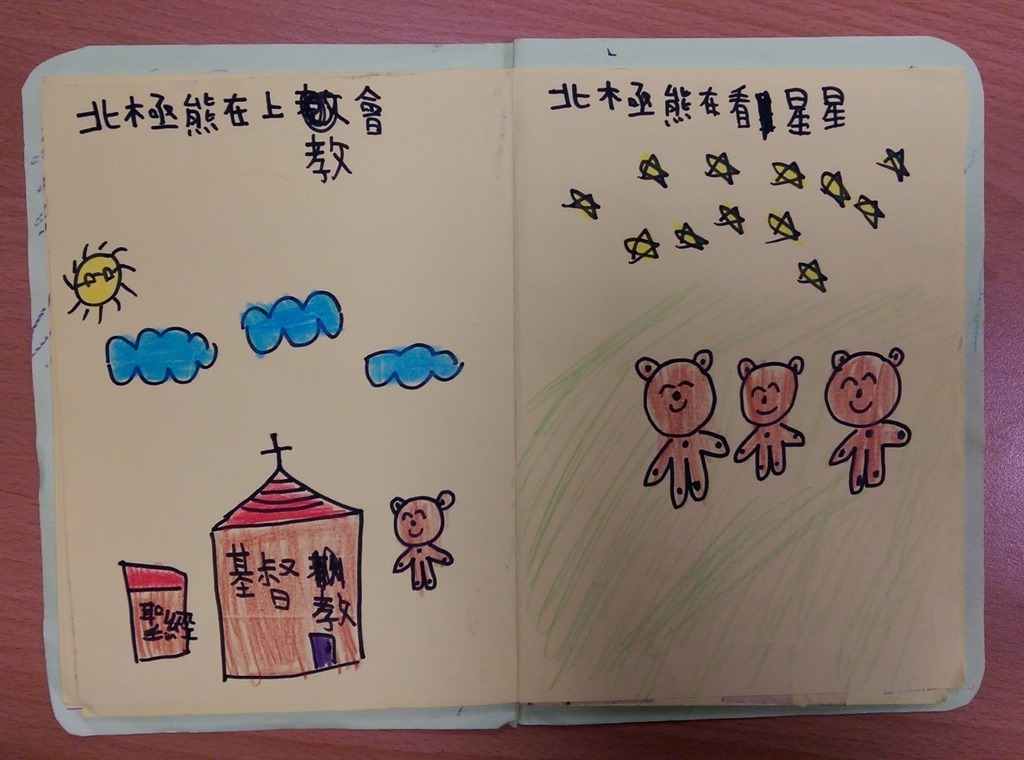 北極熊在上會
教
基督
教
聖經
北極熊在看星星